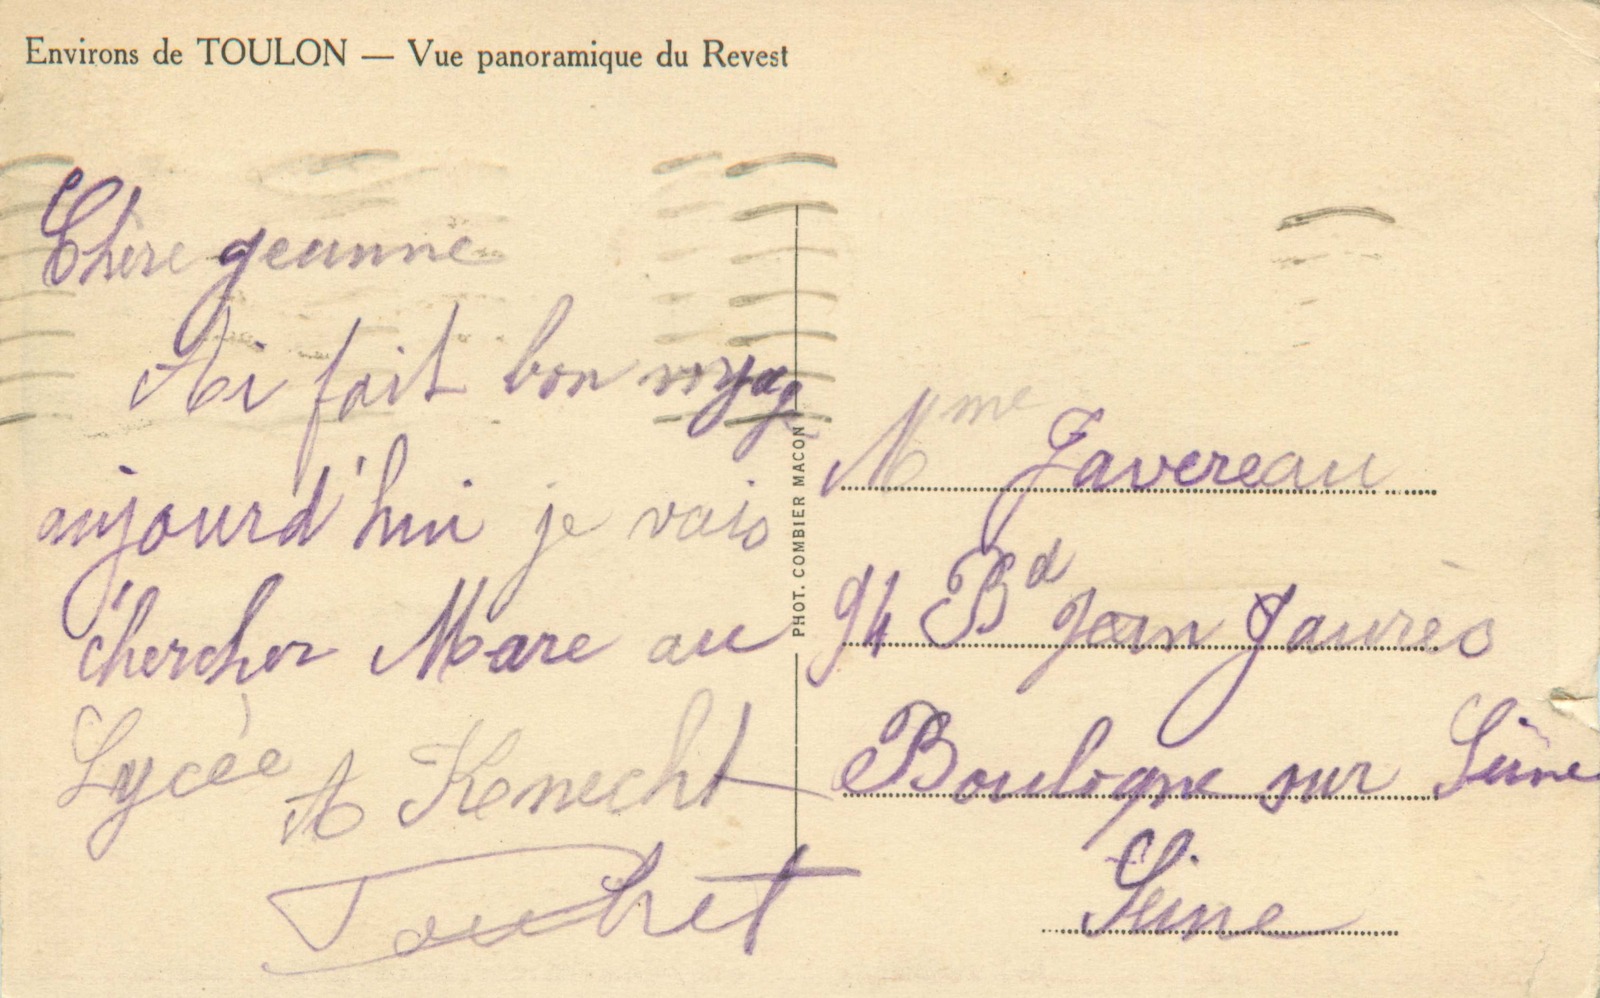 Environs de TOULON — Vue panoramique du Revest
Chère Jeanne
Ai fait bon voyag
aujourd'hui je vais
chercher Mare au
Lycée A Knecht
Touchet
PHOT. COMBIER MACON
Mme Javereau
94 Bd Jean Jaurès
Boulogne sur Seine
Seine